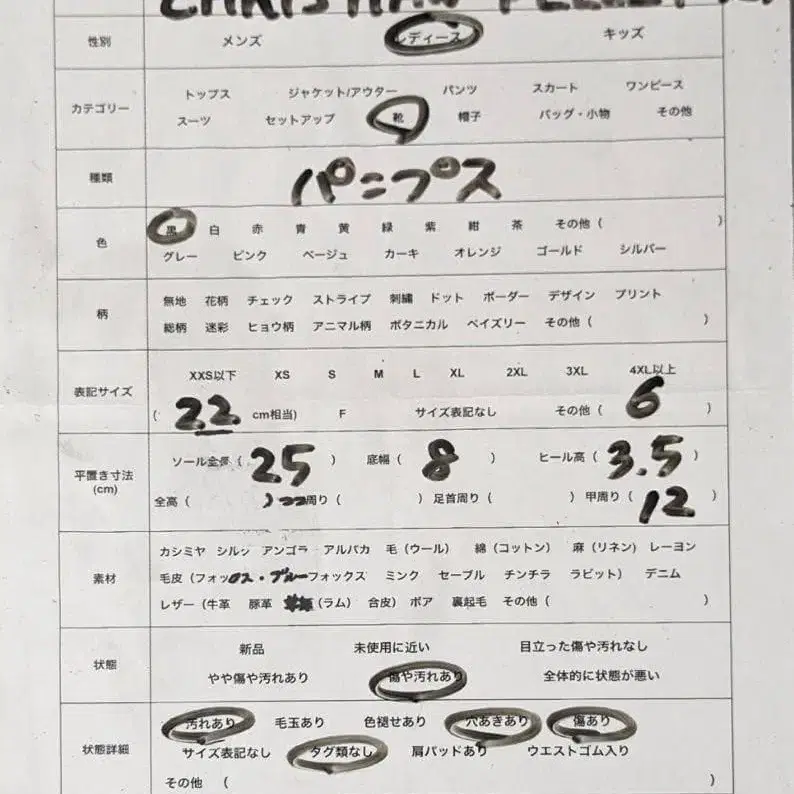 CHRISTIAN
性別 メンズ レディース キッズ
トップス ジャケット/アウター パンツ スカート ワンピース
カテゴリー
スーツ セットアップ 靴 帽子 バッグ・小物 その他
種類 パンプス
黒 白 赤 青 黄 緑 紫 紺 茶 その他 ( )
色
グレー ピンク ベージュ カーキ オレンジ ゴールド シルバー
無地 花柄 チェック ストライプ 刺繍 ドット ボーダー デザイン プリント
柄
総柄 迷彩 ヒョウ柄 アニマル柄 ボタニカル ペイズリー その他 ( )
XXS以下 XS S M L XL 2XL 3XL 4XL以上
表記サイズ
( 22 cm相当) F サイズ表記なし その他 ( 6 )
ソール全長 ( 25 ) 底幅 ( 8 ) ヒール高 ( 3.5 )
平置き寸法
(cm)
全高 ( ) 周り ( ) 足首周り ( ) 甲周り ( 12 )
カシミヤ シルク アンゴラ アルパカ 毛 (ウール) 綿 (コットン) 麻 (リネン) レーヨン
素材
毛皮 (フォックス・ブルーフォックス ミンク セーブル チンチラ ラビット) デニム
レザー (牛革 豚革 (ラム) 合皮) ボア 裏起毛 その他 ( )
新品 未使用に近い 目立った傷や汚れなし
状態
やや傷や汚れあり 傷や汚れあり 全体的に状態が悪い
汚れあり 毛玉あり 色褪せあり 穴あきあり 傷あり
状態詳細
サイズ表記なし タグ類なし 肩パッドあり ウエストゴム入り
その他 ( )